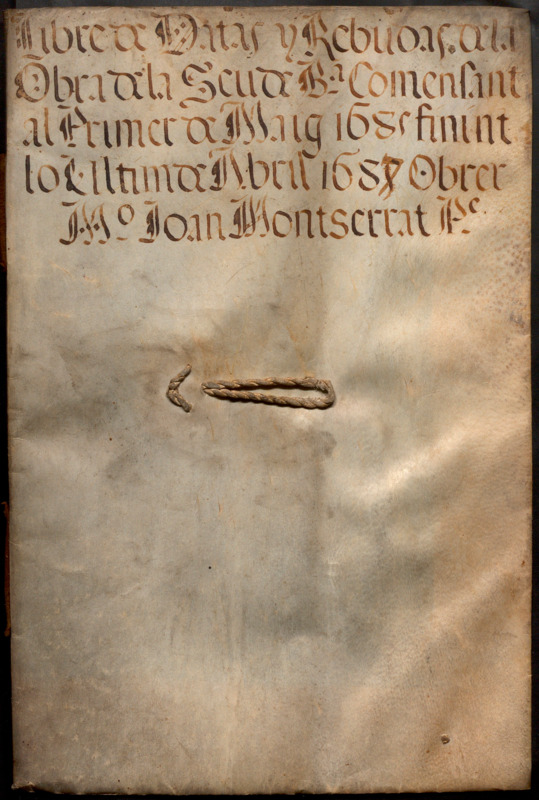 Libre de Datas y Rebudas. de la
Obra de la Seu de Bª Comensant
al Primer de Maig 1685 finint
lo Ultim de Abril 1687 Obrer
Mº Joan Montserrat Pᵉ